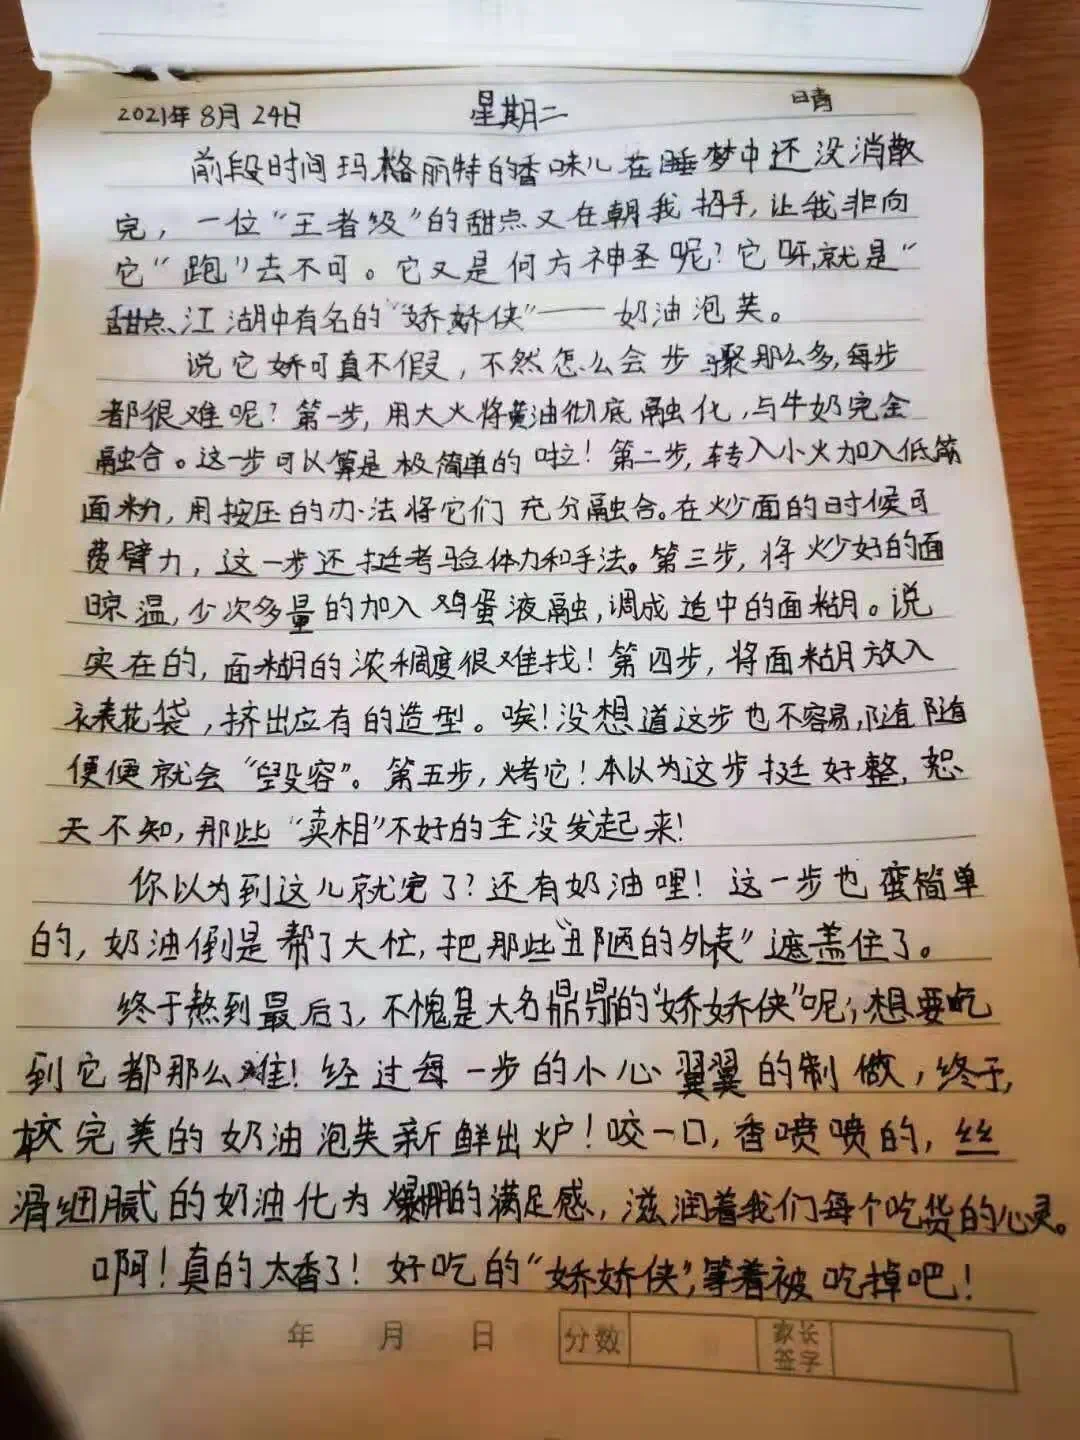 2021年8月24日 星期二 晴
前段时间玛格丽特的香味儿在睡梦中还没消散
完，一位“王者级”的甜点又在朝我招手，让我非向
它“跑”去不可。它又是何方神圣呢？它呀，就是“
甜点、江湖中有名的“娇娇侠”——奶油泡芙。
说它娇可真不假，不然怎么会步骤那么多，每步
都很难呢？第一步，用大火将黄油彻底融化，与牛奶完全
融合。这一步可以算是极简单的啦！第二步，转入小火加入低筋
面粉，用按压的办法将它们充分融合。在炒面的时候可
费臂力，这一步还挺考验体力和手法。第三步，将炒好的面
晾温，少次多量的加入鸡蛋液融，调成适中的面糊。说
实在的，面糊的浓稠度很难找！第四步，将面糊放入
裱花袋，挤出应有的造型。唉！没想道这步也不容易，随随
便便就会“毁容”。第五步，烤它！本以为这步挺好整，恕
天不知，那些“卖相”不好的全没发起来！
你以为到这儿就完了？还有奶油哩！这一步也蛮简单
的，奶油倒是帮了大忙，把那些“丑陋的外表”遮盖住了。
终于熬到最后了，不愧是大名鼎鼎的“娇娇侠”呢；想要吃
到它都那么难！经过每一步的小心翼翼的制做，终于，
较完美的奶油泡芙新鲜出炉！咬一口，香喷喷的，丝
滑细腻的奶油化为爆棚的满足感，滋润着我们每个吃货的心灵。
啊！真的太香了！好吃的“娇娇侠”，等着被吃掉吧！
年 月 日 分数 家长签字